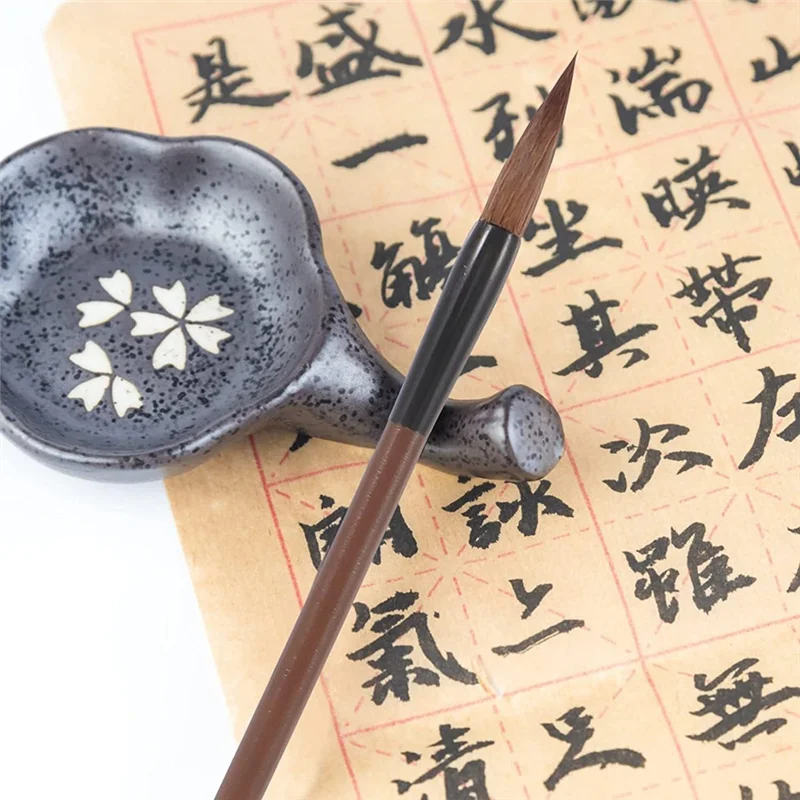 山
湍映帶左
水列坐其次雖無
盛一觴一詠亦足
是朗氣清